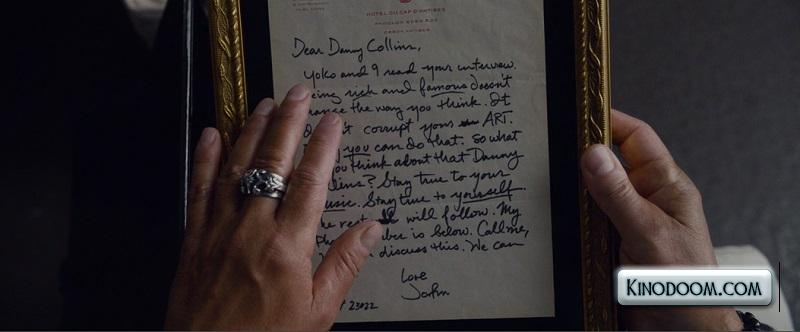 HOTEL DU CAP D'ANTIBES
Dear Danny Collins,
Yoko and I read your interview.
rich and famous doesn't
the way you think. It
corrupt your ART.
you can do that. So what
think about that Danny
Stay true to your
Stay true to yourself.
rest will follow. My
is below. Call me,
discuss this. We can
Love
John
KINODOOM.COM